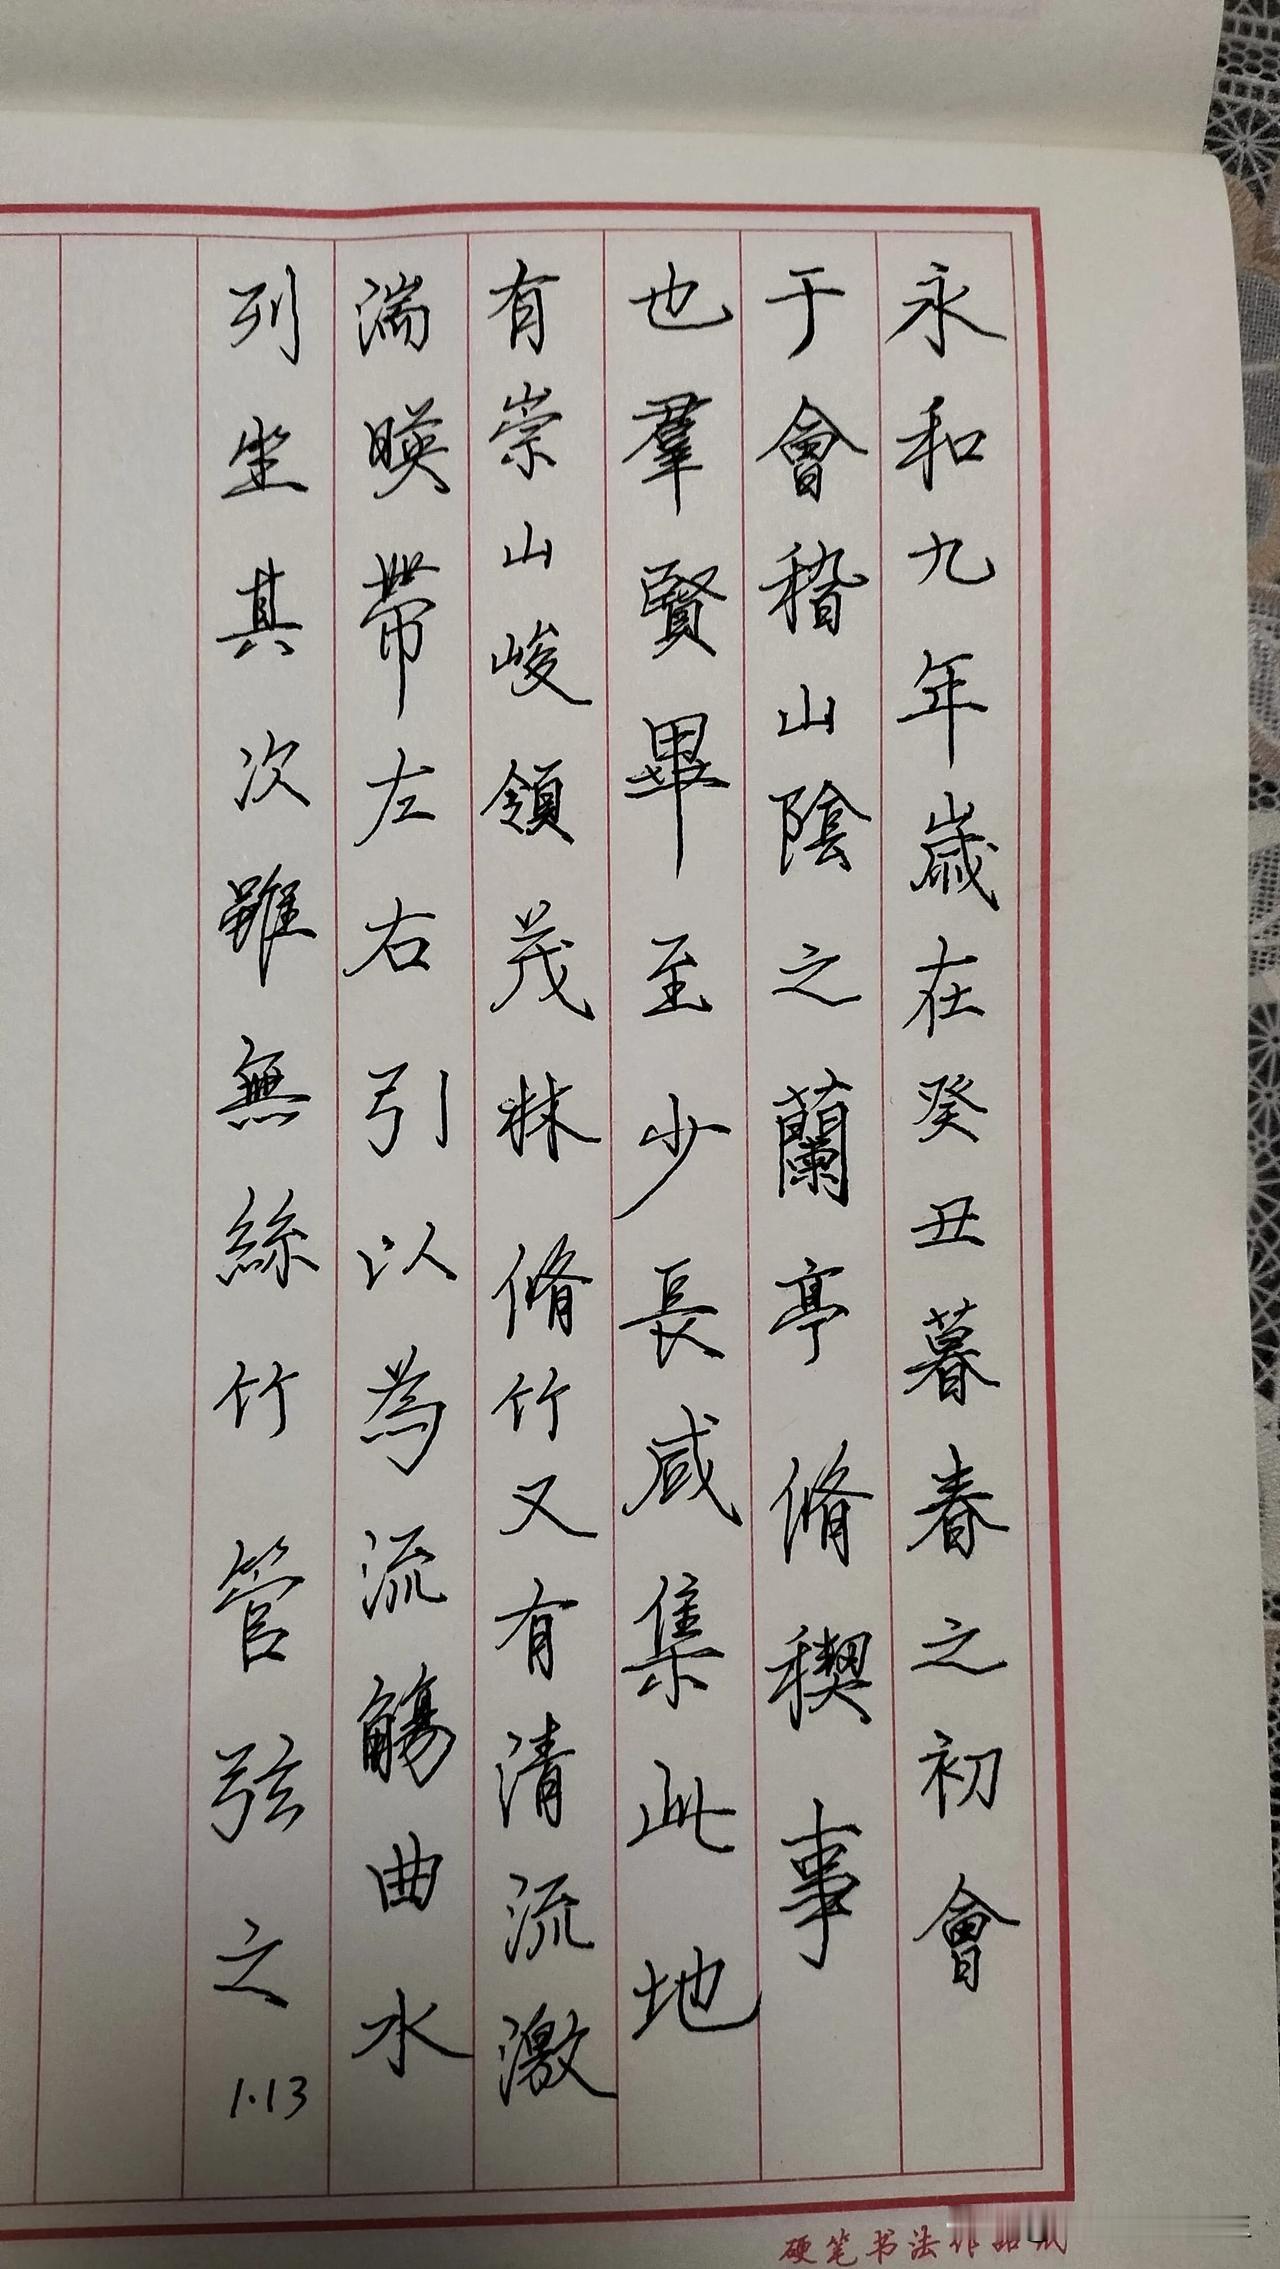 永和九年歲在癸丑暮春之初會
于會稽山陰之蘭亭脩稧事
也羣賢畢至少長咸集此地
有崇山峻領茂林脩竹又有清流激
湍暎帶左右引以為流觴曲水
列坐其次雖無絲竹管弦之
1.13
硬笔书法作品